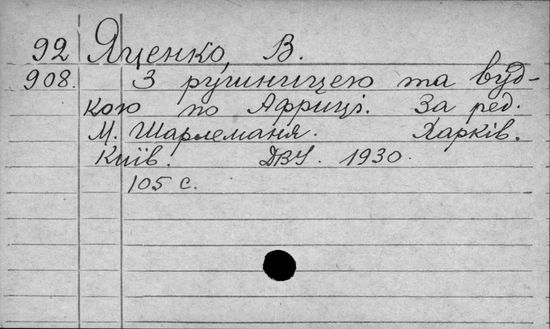 92 Яценко, В.
908. З рушницею та вуд-
кою по Африці. За ред.
М. Шарлеманя. Харків.
Київ. ДВУ. 1930.
105 с.